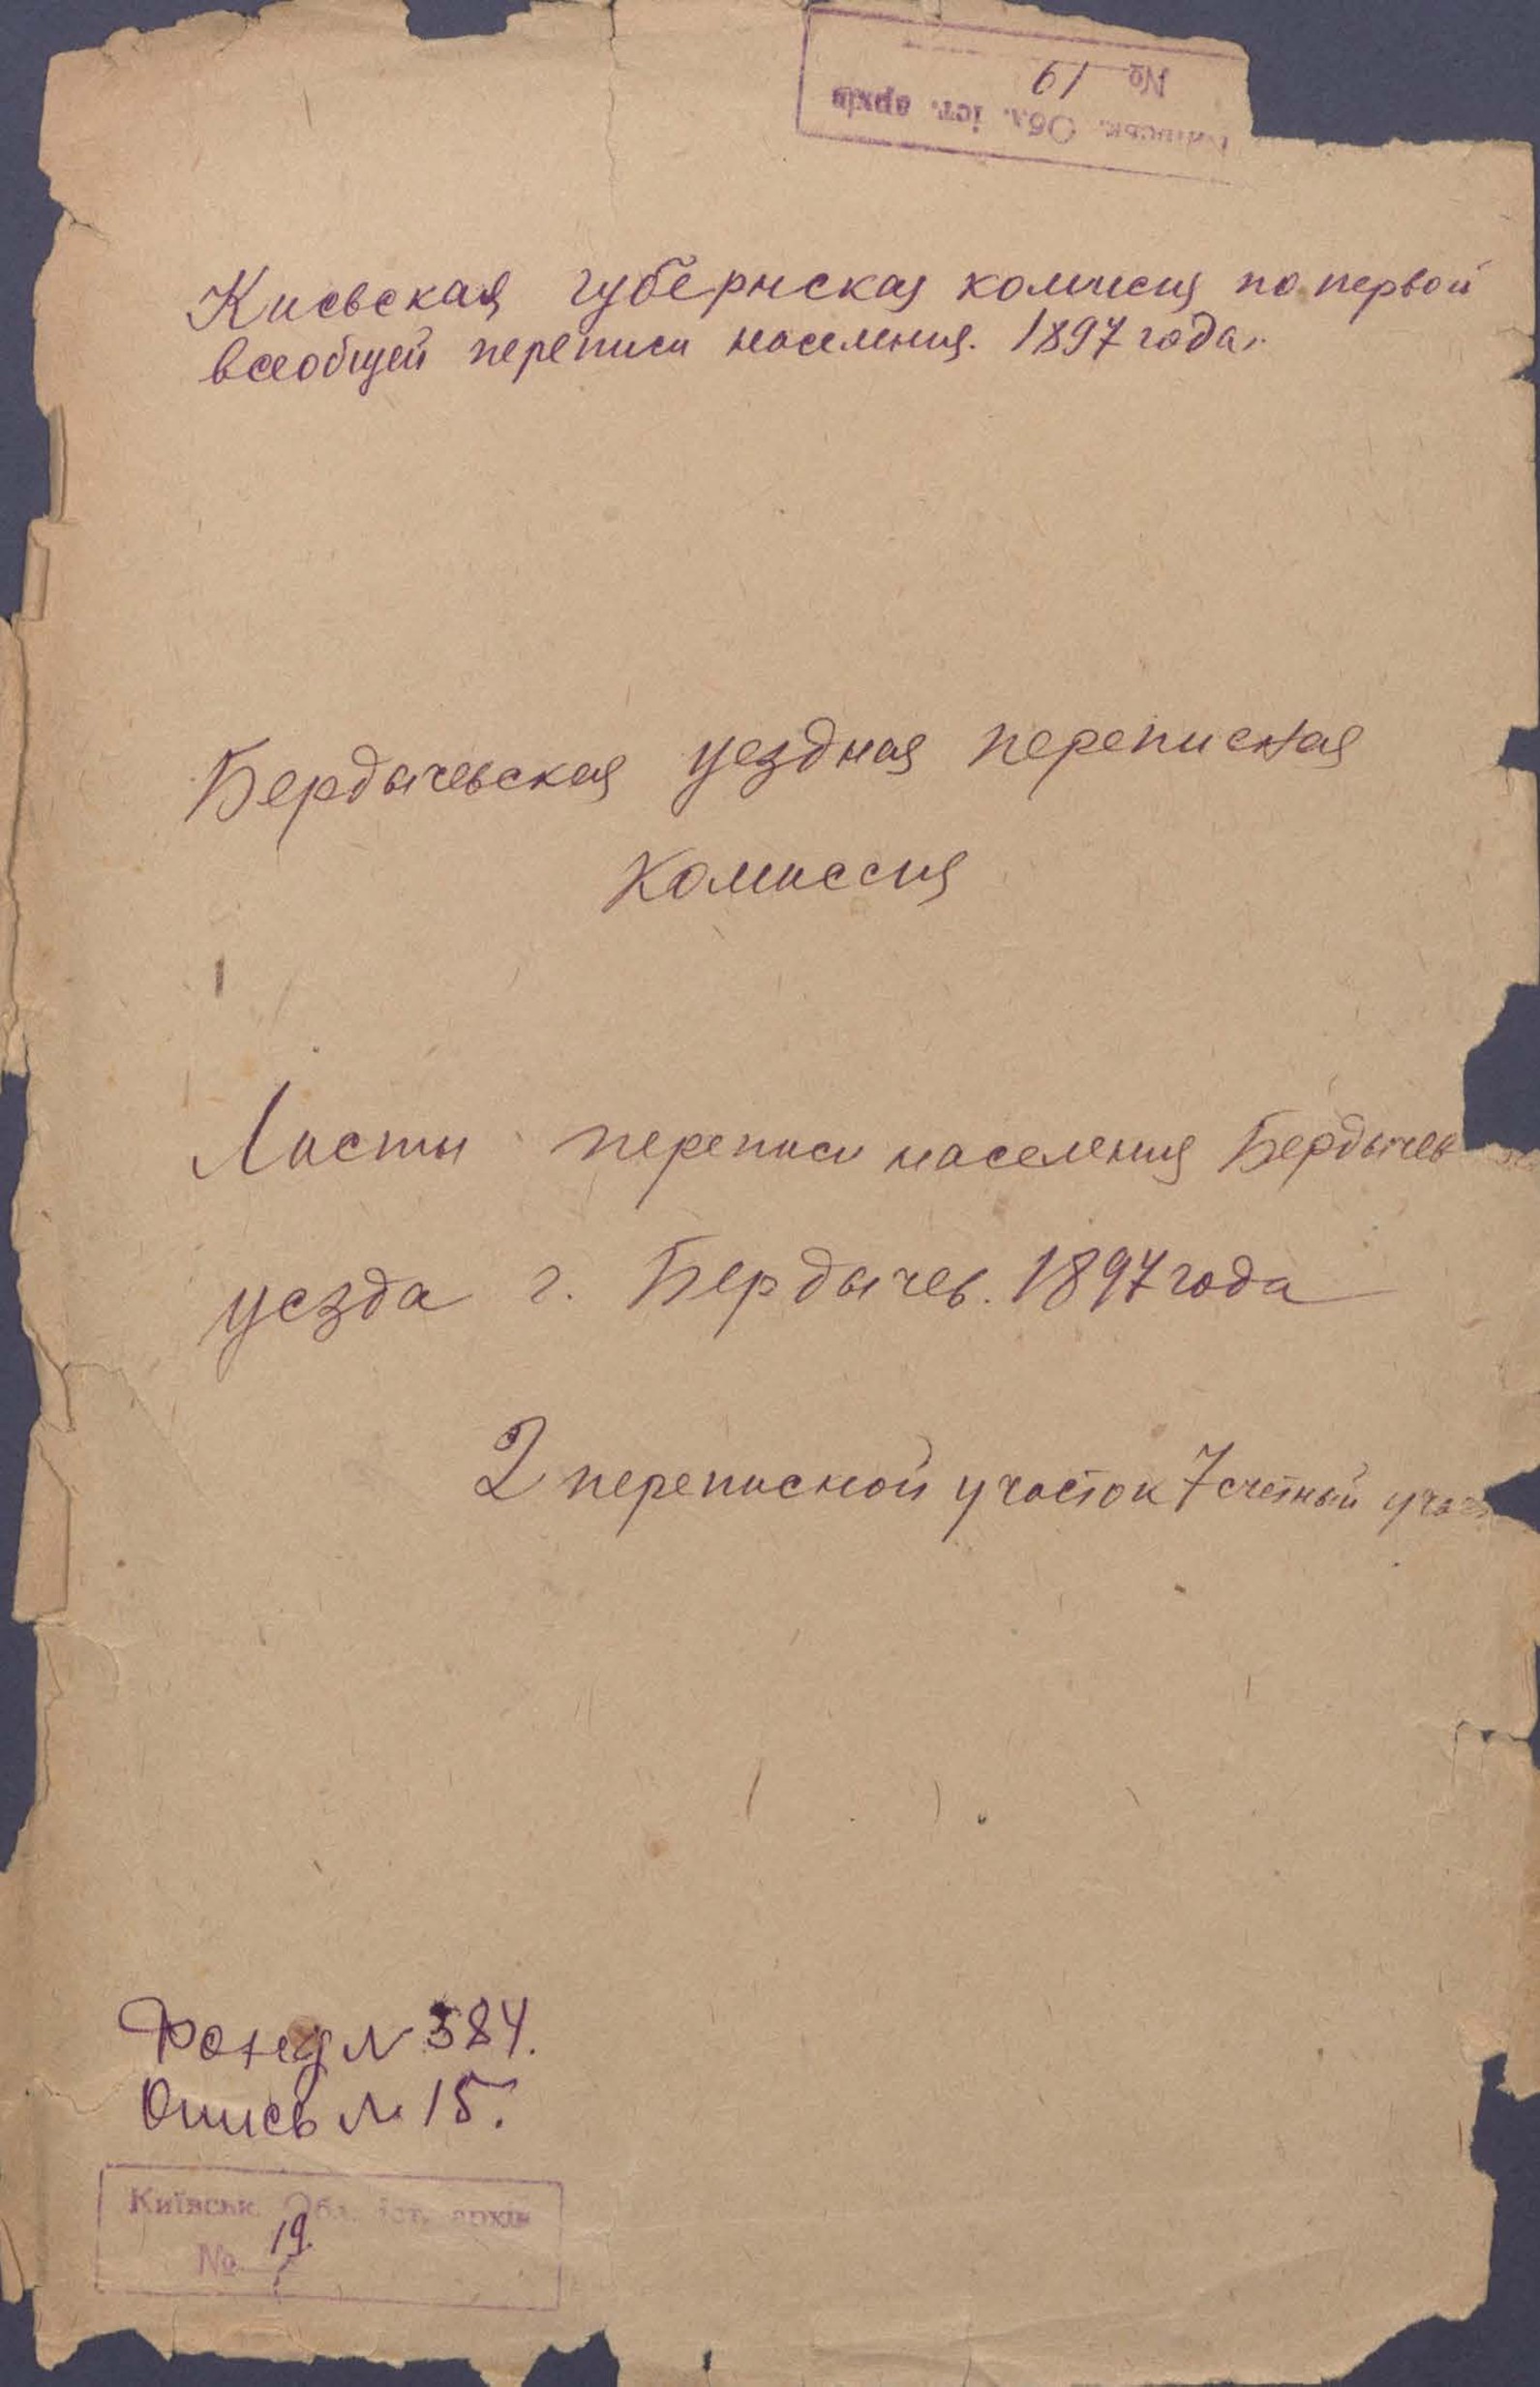 Київськ. Обл. іст. архів
№ 19
Киевская губернская комисия по первой
всеобщей переписи населения. 1897 года.
Бердычевская уездная переписная
комиссия
Листы переписи населения Бердычев
уезда г. Бердычев. 1897 года
2 переписной участок 7 счетный учас
Фонд N 384.
Опись № 15.
Київськ. Обл. іст. архів
№ 19